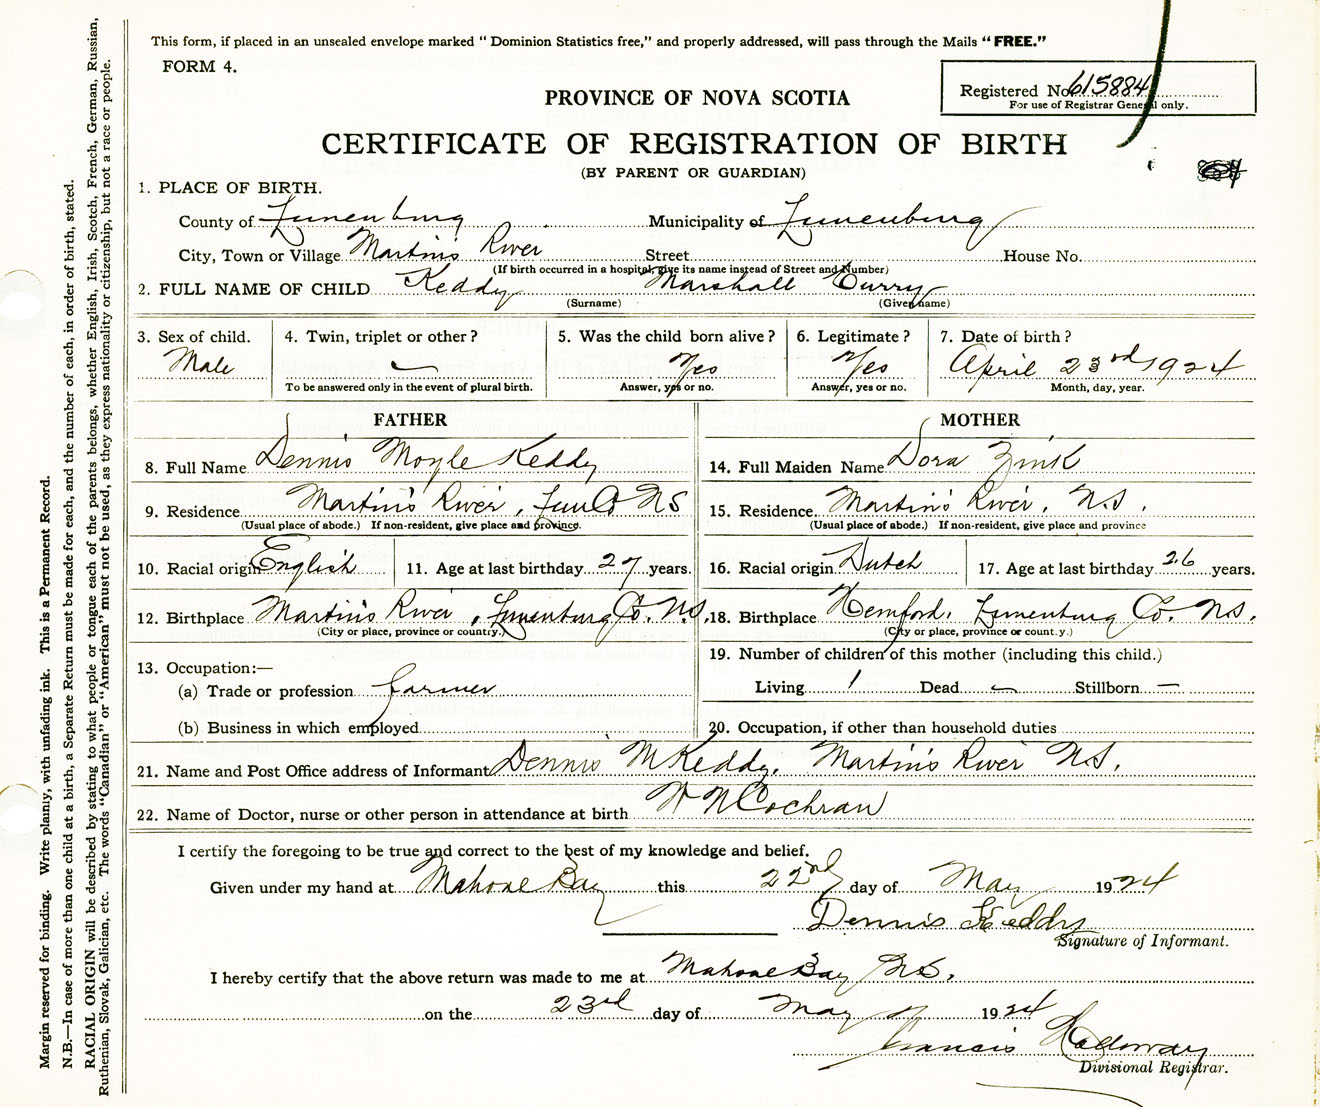 This form, if placed in an unsealed envelope marked "Dominion Statistics free," and properly addressed, will pass through the Mails "FREE."
FORM 4.
Registered No. 615884
For use of Registrar General only.
PROVINCE OF NOVA SCOTIA
CERTIFICATE OF REGISTRATION OF BIRTH
(BY PARENT OR GUARDIAN)
1. PLACE OF BIRTH.
County of Lunenburg Municipality of Lunenburg
City, Town or Village Martin's River Street House No.
(If birth occurred in a hospital, give its name instead of Street and Number)
2. FULL NAME OF CHILD Keddy Marshall Curry
(Surname) (Given name)
3. Sex of child. 4. Twin, triplet or other? 5. Was the child born alive? 6. Legitimate? 7. Date of birth?
Male Yes Yes April 23rd 1924
To be answered only in the event of plural birth. Answer, yes or no. Answer, yes or no. Month, day, year.
FATHER MOTHER
8. Full Name Dennis Moyle Keddy 14. Full Maiden Name Dora Zink
9. Residence Martin's River, Lun Co NS 15. Residence Martin's River, N.S.
(Usual place of abode.) If non-resident, give place and province. (Usual place of abode.) If non-resident, give place and province
10. Racial origin English 11. Age at last birthday 27 years. 16. Racial origin Dutch 17. Age at last birthday 26 years.
12. Birthplace Martin's River, Lunenburg Co. N.S. 18. Birthplace Hemford, Lunenburg Co. N.S.
(City or place, province or country.) (City or place, province or country.)
13. Occupation:— 19. Number of children of this mother (including this child.)
(a) Trade or profession farmer Living 1 Dead — Stillborn —
(b) Business in which employed 20. Occupation, if other than household duties
21. Name and Post Office address of Informant Dennis M Keddy, Martin's River N.S.
22. Name of Doctor, nurse or other person in attendance at birth W N Cochran
I certify the foregoing to be true and correct to the best of my knowledge and belief.
Given under my hand at Mahone Bay this 22nd day of May 1924
Dennis Keddy
Signature of Informant.
I hereby certify that the above return was made to me at Mahone Bay N.S.
on the 23rd day of May 1924
Francis Holloway
Divisional Registrar.
Margin reserved for binding. Write plainly, with unfading ink. This is a Permanent Record.
N.B.—In case of more than one child at a birth, a Separate Return must be made for each, and the number of each, in order of birth, stated.
RACIAL ORIGIN will be described by stating to what people or tongue each of the parents belongs, whether English, Irish, Scotch, French, German, Russian,
Ruthenian, Slovak, Galician, etc. The words "Canadian" or "American" must not be used, as they express nationality or citizenship, but not a race or people.